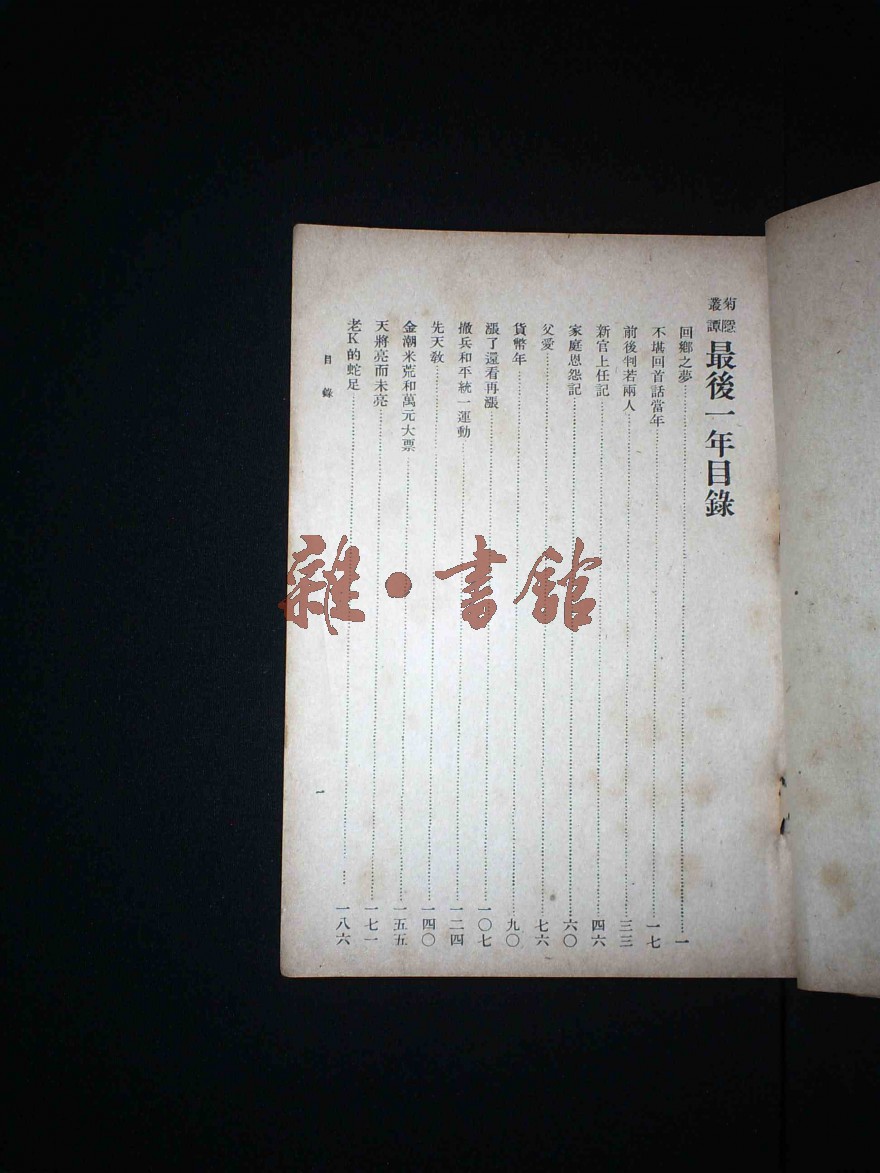 菊隱叢譚 最後一年目錄
回鄉之夢……一
不堪回首話當年……一七
前後判若兩人……三三
新官上任記……四六
家庭恩怨記……六〇
父愛……七六
貨幣年……九〇
漲了還看再漲……一〇七
撤兵和平統一運動……一二四
先天教……一四〇
金潮米荒和萬元大票……一五五
天將亮而未亮……一七一
老K的蛇足……一八六
目錄
一
雜·書館